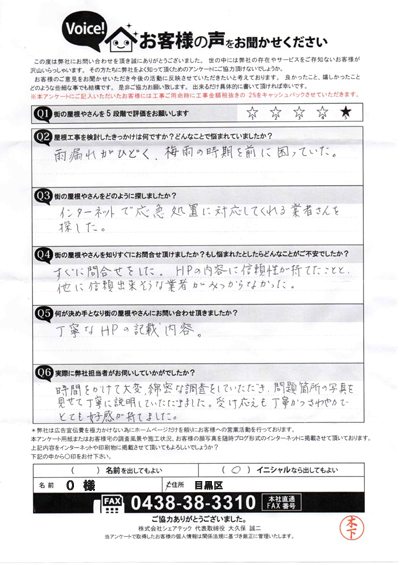 Voice!
お客様の声をお聞かせください
この度は弊社にお問い合わせを頂き誠にありがとうございます。 世の中には弊社の存在やサービスをご存知ないお客様が
沢山いらっしゃいます。 その方たちに弊社をよく知って頂くためのアンケートにご協力頂けないでしょうか。
お客様のご意見をお聞かせいただき今後の活動に反映させていただきたいと考えております。 良かったこと、嬉しかったこと
どのような些細な事でも結構です。 是非ご協力お願い致します。 出来るだけ具体的に書いて頂ければ幸いです。
※本アンケートにご記入いただいたお客様には工事ご用命時に工事金額税抜きの 2%をキャッシュバックさせていただきます。
Q1 街の屋根やさんを 5 段階で評価をお願いします
☆ ☆ ☆ ☆ ★
Q2 屋根工事を検討したきっかけは何ですか?どんなことで悩まれていましたか?
雨漏れがひどく、梅雨の時期を前に困っていた。
Q3 街の屋根やさんをどのように探しましたか?
インターネットで応急処置に対応してくれる業者さんを
探した。
Q4 街の屋根やさんを知りすぐにお問合せ頂けましたか?もし悩まれたとしたらどんなことがご不安でしたか?
すぐに問合せをした。HPの内容に信頼性が持てたことと、
他に信頼出来そうな業者がみつからなかった。
Q5 何が決め手となり街の屋根やさんにお問い合わせ頂きましたか?
丁寧なHPの記載内容。
Q6 実際に弊社担当者がお伺いしていかがでしたか?
時間をかけて大変、綿密な調査をしていただき、問題箇所の写真を
見せて丁寧に説明していただきました。受け応えも丁寧かつさわやかで
とても好感が持てました。
* 弊社は広告宣伝費を極力かけない為にホームページだけを頼りにお客様への営業活動を行っております。
本アンケート用紙またはお客様宅の調査風景や施工状況、お客様の顔写真を随時ブログ形式のインターネットに掲載させて頂いております。
上記内容をインターネットや印刷物に掲載させて頂いてもよろしいでしょうか?
下記の中から〇印をお付け下さい。
( ) 名前を出してもよい
( ○ ) イニシャルなら出してもよい
名 前 O 様
ご住所 目黒区
FAX 0438-38-3310 本社直通 FAX 番号
ご協力ありがとうございました。
株式会社シェアテック 代表取締役 大久保 誠二
当アンケートで取得したお客様の個人情報は関係法規に基づき厳正に管理いたします。
木下